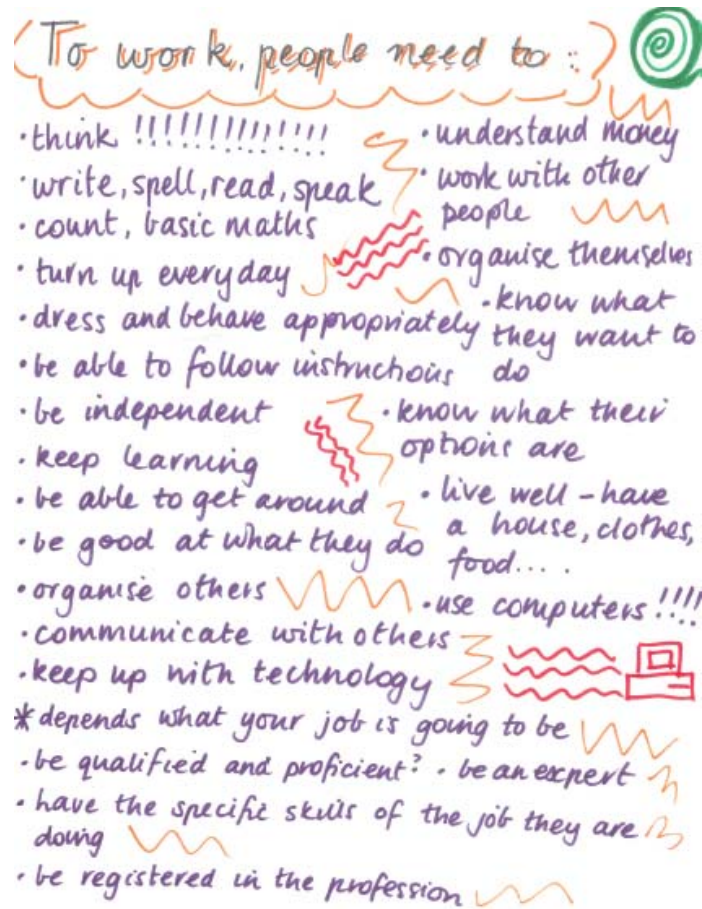 To work, people need to:
• think !!!!!!!!!!!!!!
• write, spell, read, speak
• count, basic maths
• turn up everyday
• dress and behave appropriately
• be able to follow instructions
• be independent
• keep learning
• be able to get around
• be good at what they do
• organise others
• communicate with others
• keep up with technology
• understand money
• work with other
people
• organise themselves
• know what
they want to
do
• know what their
options are
• live well – have
a house, clothes,
food....
• use computers !!!!
* depends what your job is going to be
• be qualified and proficient? • be an expert
• have the specific skills of the job they are
doing
• be registered in the profession